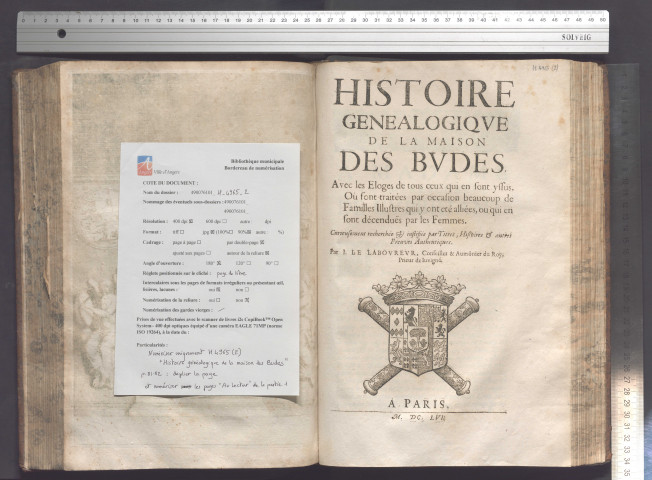 SOLVEIG
Ville d'Angers
Bibliothèque municipale
Bordereau de numérisation
COTE DU DOCUMENT :
Nom du dossier : 490076101_ H_4965_2
Nommage des éventuels sous-dossiers : 490076101_
490076101_
Résolution : 400 dpi ☒ 600 dpi ☐ autre: dpi
Format : tiff ☐ jpg ☒ (100% ☐ 90% ☒ autre: %)
Cadrage : page à page ☐ par double-page ☒
ajusté aux pages ☐ autour de la reliure ☒
Angle d'ouverture : 180° ☒ 120° ☐ 90° ☐
Réglets positionnés sur le cliché : page de titre
Intercalaires sous les pages de formats irréguliers ou présentant mq,
lisières, lacunes : oui ☒ non ☐
Numérisation de la reliure : oui ☐ non ☒
Numérisation des gardes vierges :
Prises de vue effectuées avec le scanner de livres i2s CopiBook™ Open
System - 400 dpi optiques équipé d'une caméra EAGLE 71MP (norme
ISO 19264), à la date du :
Particularités :
Numériser uniquement H 4965 (2)
"Histoire généalogique de la maison des Budes"
p. 81-82 : déplier la page
et numériser les pages "Au Lecteur" de la partie 1
HISTOIRE
GENEALOGIQVE
DE LA MAISON
DES BVDES.
Avec les Eloges de tous ceux qui en sont yssus.
Où sont traitées par occasion beaucoup de
Familles Illustres qui y ont eté alliées, ou qui en
sont décenduës par les Femmes.
Curieusement recherchée & justifiée par Titres, Histoires & autres
Preuves Authentiques.
Par I. LE LABOVREVR, Conseiller & Aumônier du Roy,
Prieur de Iuvigné.
A PARIS.
M. DC. LVI.